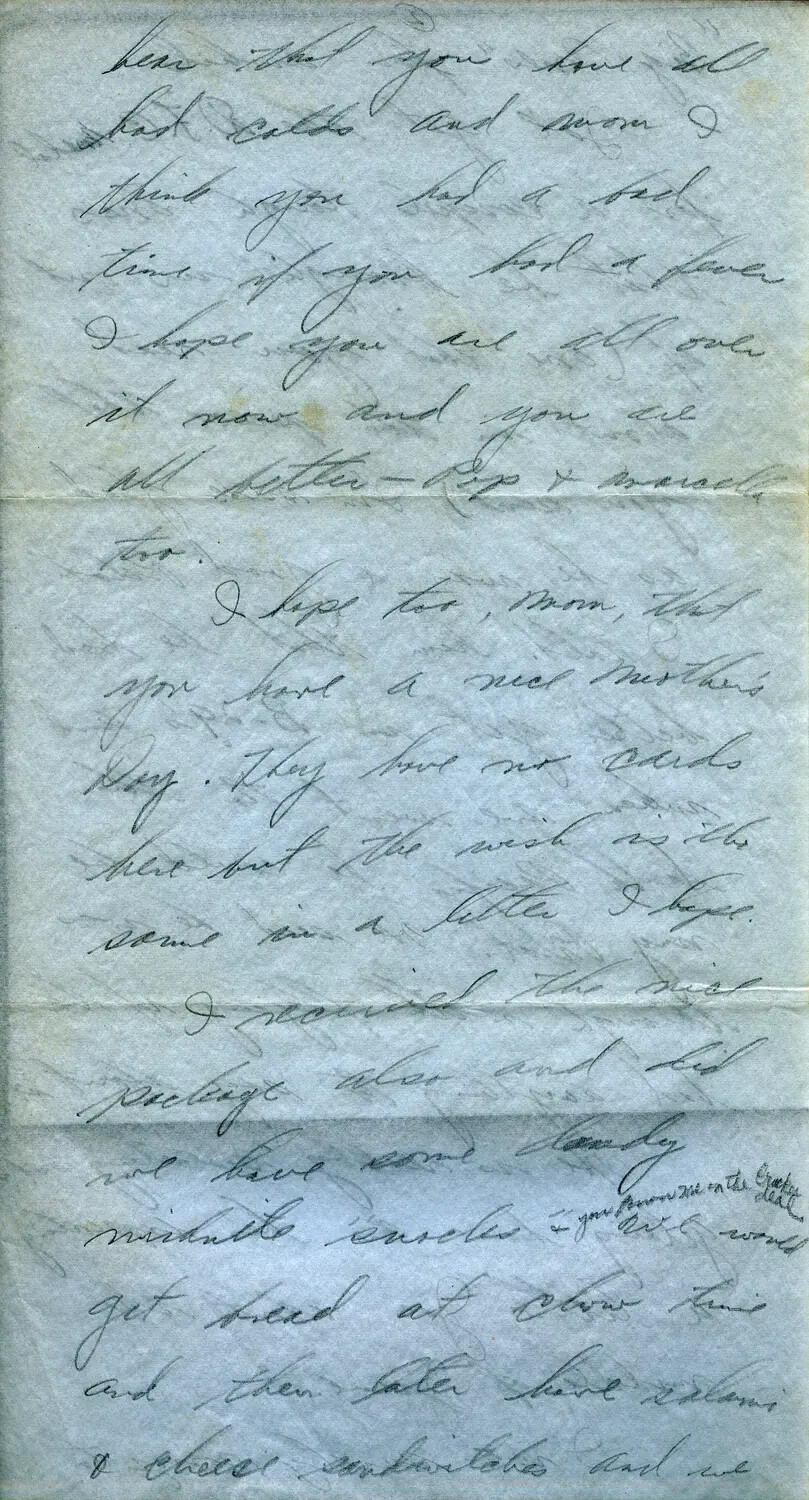 hear that you have all
bad colds and mom I
think you had a bad
time if you had a fever
I hope you are all over
it now and you are
all better – Pop & Marcella
too.
I hope too, Mom, that
you have a nice Mother's
Day. They have no cards
here but the wish is the
same in a letter I hope.
I received the nice
package also and did
we have some dandy
midnite snacks – you know me on the cracker deal
We would
get bread at chow time
and then later have salami
& cheese sandwitches and we